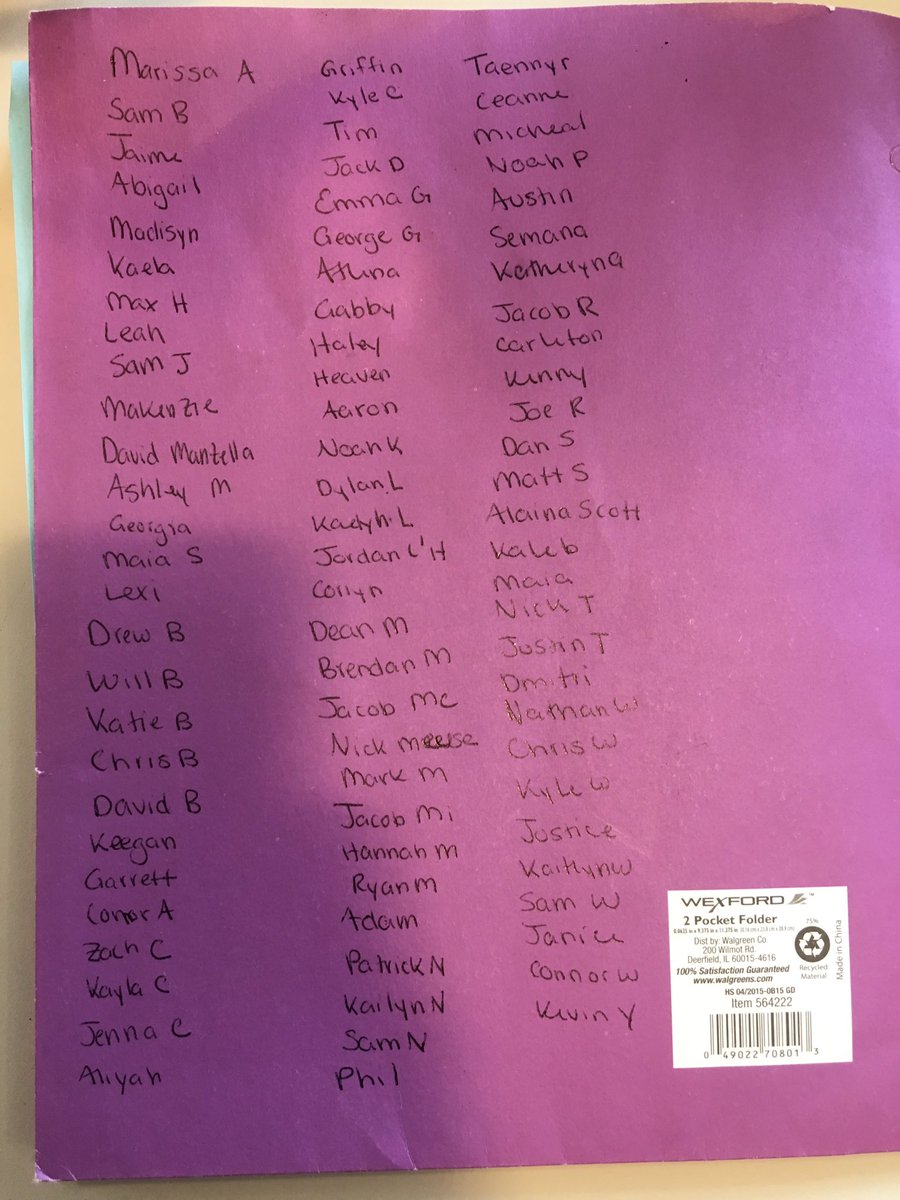 Marissa A
Sam B
Jaime
Abigail
Madisyn
Kaela
Max H
Leah
Sam J
Makenzie
David Mantella
Ashley M
Georgia
Maia S
Lexi
Drew B
Will B
Katie B
Chris B
David B
Keegan
Garrett
Conor A
Zach C
Kayla C
Jenna C
Aliyah
Griffin
Kyle C
Tim
Jack D
Emma G
George G
Athina
Gabby
Haley
Heaven
Aaron
Noah K
Dylan L
Kadyn L
Jordan L'H
Corryn
Dean M
Brendan M
Jacob Mc
Nick Meese
Mark M
Jacob Mi
Hannah M
Ryan M
Adam
Patrick N
Kailyn N
Sam N
Phil
Taennyr
Ceanne
Micheal
Noah P
Austin
Semana
Katheryn Q
Jacob R
Carleton
Kenny
Joe R
Dan S
Matt S
Alaina Scott
Kaleb
Maia
Nick T
Justin T
Dmitri
Nathan W
Chris W
Kyle W
Justice
Kaitlyn W
Sam W
Janice
Connor W
Kevin Y
WEXFORD ™
2 Pocket Folder
Dist by: Walgreen Co
200 Wilmot Rd.
Deerfield, IL 60015-4616
100% Satisfaction Guaranteed
www.walgreens.com
HS 04/2015-0B15 GD
Item 564222
0 49022 70801 3
75%
Recycled
Material
Made in China